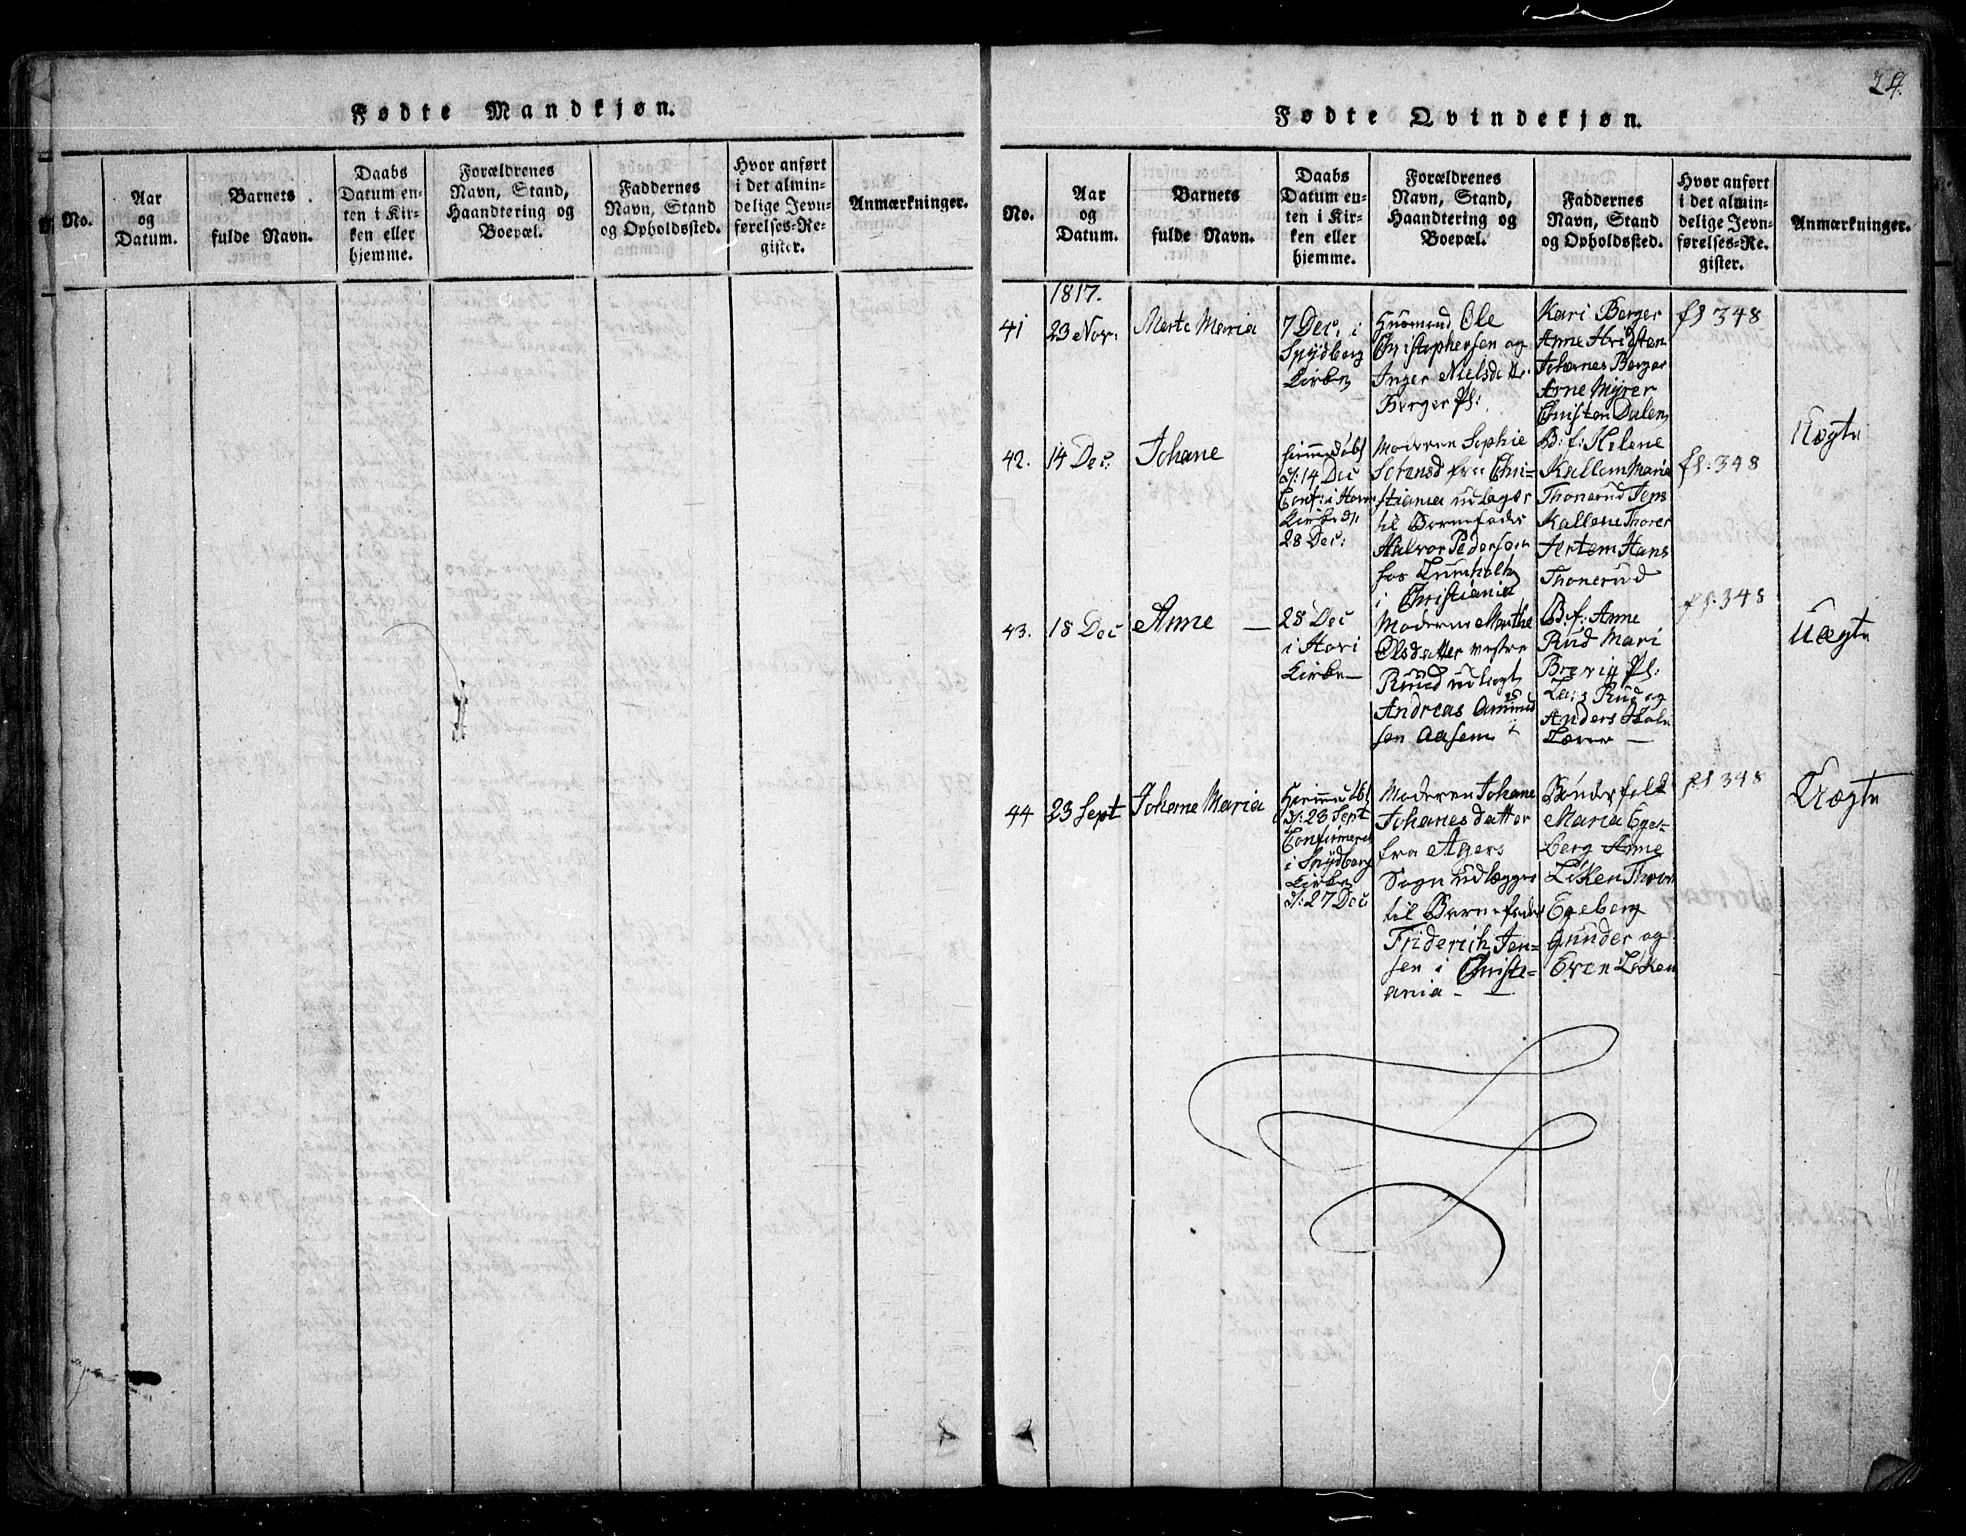 24.
Fødte Mandkjøn.
No.
Aar
og
Datum.
Barnets
fulde Navn.
Daabs
Datum en-
ten i Kir-
ken eller
hjemme.
Forældrenes
Navn, Stand,
Haandtering og
Boepæl.
Faddernes
Navn, Stand
og Opholdssted.
Hvor anført
i det almin-
delige Jevn-
førelses-Re-
gister.
Anmærkninger.
Fødte Qvindekjøn.
No.
Aar
og
Datum.
Barnets
fulde Navn.
Daabs
Datum en-
ten i Kir-
ken eller
hjemme.
Forældrenes
Navn, Stand,
Haandtering og
Boepæl.
Faddernes
Navn, Stand
og Opholdssted.
Hvor anført
i det almin-
delige Jevn-
førelses-Re-
gister.
Anmærkninger.
1817.
41
23 Nov:
Merte Maria
7 Dec: i
Spydberg
Kirke
Huusmand Ole
Christophersen og
Inger Nielsdatter
Berger Pl:
Kari Berger
Anne Hvidsten
Johannes Berger
Arne Myrer
Christen Dalen
fl 348
42.
14 Dec:
Johane
hiemmedøbt
d: 14 Dec
Conf: i Hovi
Kirke d:
28 Dec:
Moderen Sophie
Sørensd fra Chri-
stiania udlægger
til Barnefader
Halvor Pedersen
hos Tumholt
i Christiania
B: f: Helene
Kallem Maria
Thonerud Jens
Kallene Thorer
Hans
Thonerud
fl: 348
Uægte
43.
18 Dec
Anne —
28 Dec
i Hovi
Kirke —
Moderen Marthe
Olsdatter vestre
Ruud udlagt
Andreas Amund
sen Aasem
B: f: Anne
Rud Mari
Brevig Pl:
Lars Rud og
Anders
—
fl: 348
Uægte
44
23 Sept
Johane Maria
Hiemmedøbt
d: 23 Sept
Confirmeret
i Spydberg
Kirke
d: 27 Dec
Moderen Johane
Johanesdatter
fra Agers
Sogn udlægger
til Barnefader
Friderich Jen-
sen i Christi-
ania — —
Bønderfolk
Maria Ege-
berg Anne
Løken Thron
Egeberg
Gunder og
Even Løken
fl 348
Uægte